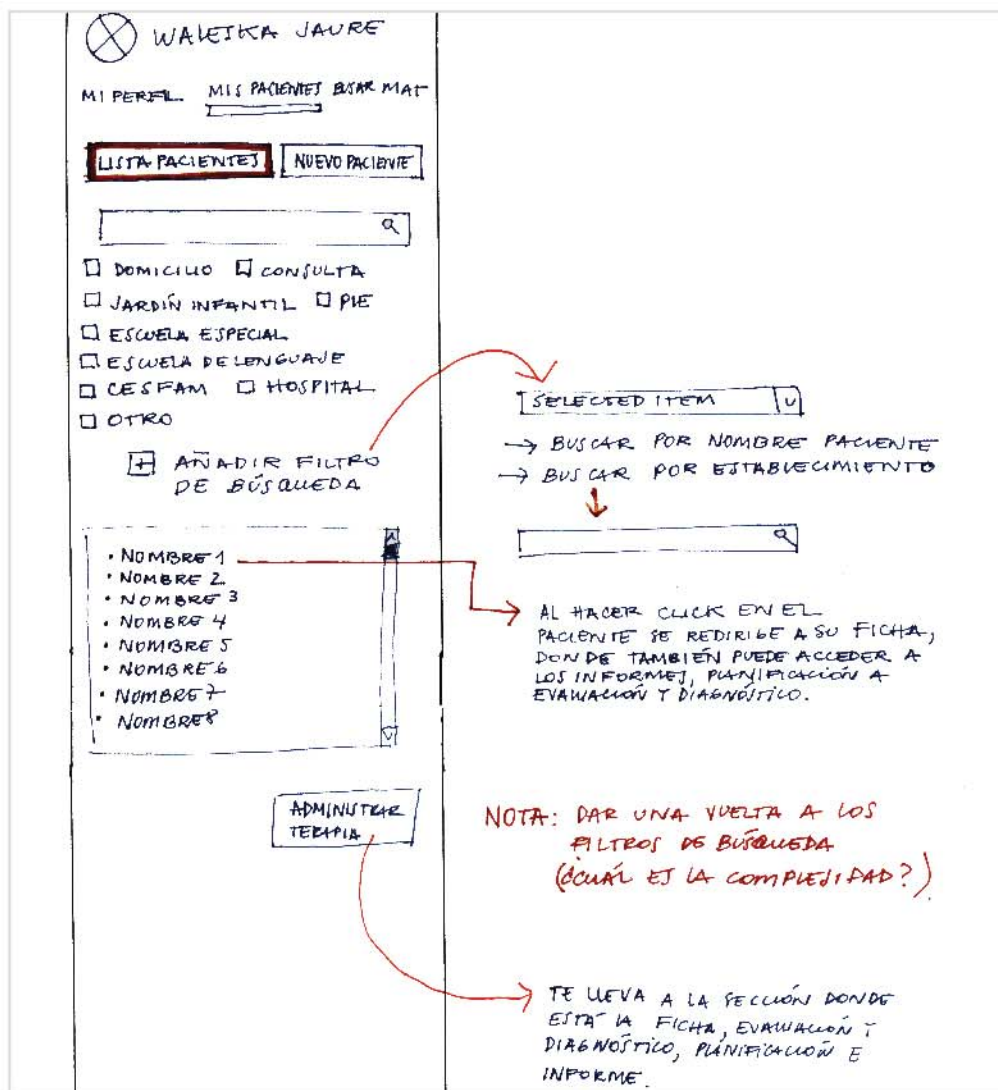 WALESKA JAURE
MI PERFIL MIS PACIENTES BUSAR MAT
LISTA PACIENTES NUEVO PACIENTE
DOMICILIO CONSULTA
JARDÍN INFANTIL PIE
ESCUELA ESPECIAL
ESCUELA DE LENGUAJE
CESFAM HOSPITAL
OTRO
+ AÑADIR FILTRO
DE BÚSQUEDA
• NOMBRE 1
• NOMBRE 2
• NOMBRE 3
• NOMBRE 4
• NOMBRE 5
• NOMBRE 6
• NOMBRE 7
• NOMBRE 8
ADMINISTRAR
TERAPIA
SELECTED ITEM
→ BUSCAR POR NOMBRE PACIENTE
→ BUSCAR POR ESTABLECIMIENTO
AL HACER CLICK EN EL
PACIENTE SE REDIRIGE A SU FICHA,
DONDE TAMBIÉN PUEDE ACCEDER A
LOS INFORMES, PLANIFICACIÓN A
EVALUACIÓN Y DIAGNÓSTICO.
NOTA: DAR UNA VUELTA A LOS
FILTROS DE BÚSQUEDA
(¿CUÁL ES LA COMPLEJIDAD?)
TE LLEVA A LA SECCIÓN DONDE
ESTÁ LA FICHA, EVALUACIÓN Y
DIAGNÓSTICO, PLANIFICACIÓN E
INFORME.